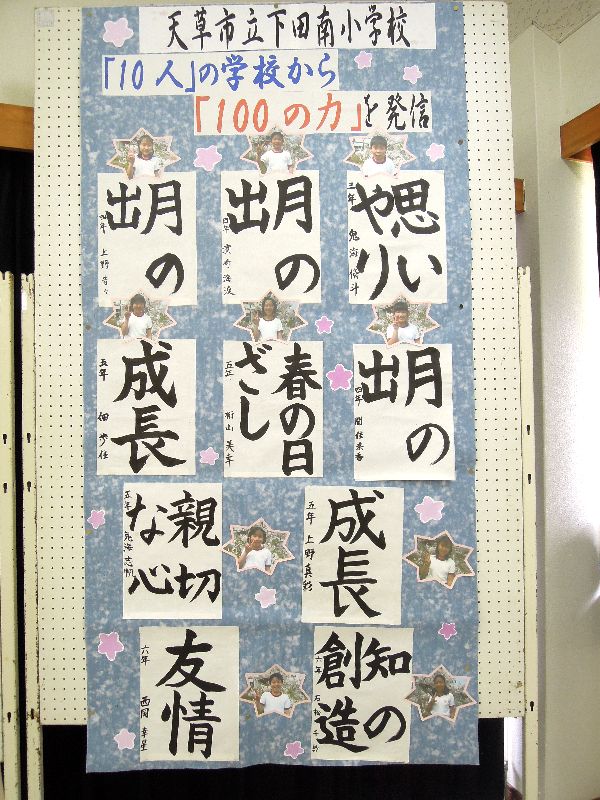 天草市立下田南小学校
「10人」の学校から
「100の力」を発信
思い
やり
三年 鬼海
月の
出
四年
月の
出
四年 上野
月の
出
四年
春の日
ざし
五年
成長
五年 畑
成長
五年 上野 真彩
親切
な心
五年 鬼海 志帆
知の
創造
六年 石松
友情
六年 西岡 幸星